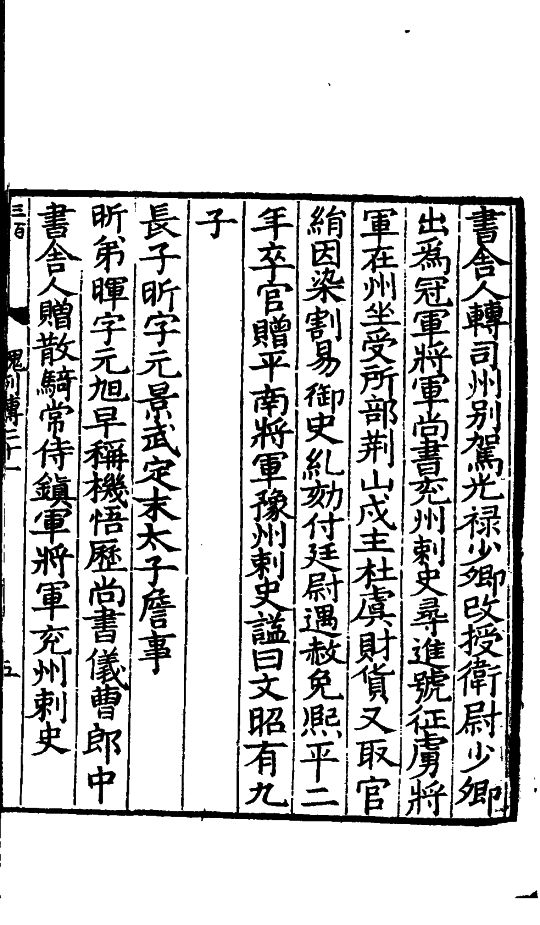 書舍人轉司州别駕光禄少卿改授衛尉少卿
出爲冠軍將軍尚書兖州刺史尋進號征虜將
軍在州坐受所部荆山戍主杜虞財貨又取官
絹因染割易御史糺劾付廷尉遇赦免熙平二
年卒官贈平南將軍豫州刺史謚曰文昭有九
子
長子昕字元景武定末太子詹事
昕弟暉字元旭早稱機悟歷尚書儀曹郎中
書舍人贈散騎常侍鎮軍將軍兖州刺史
三百
魏列傳三十一
五